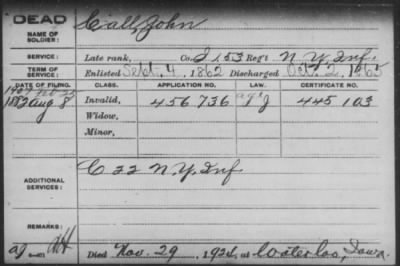 DEAD
Call, John
NAME OF SOLDIER:
SERVICE:
Late rank, Co. I 153 Reg't N. Y. Inf.
TERM OF SERVICE
Enlisted Sept. 4, 1862 Discharged Oct. 2, 1865
DATE OF FILING. CLASS. APPLICATION NO. LAW. CERTIFICATE NO.
1882 Aug 8 Invalid, 456 736 445 103
Widow,
Minor,
ADDITIONAL SERVICES:
C 22 N. Y. Inf
REMARKS:
Died Nov. 29, 1924, at Waterloo, Iowa.